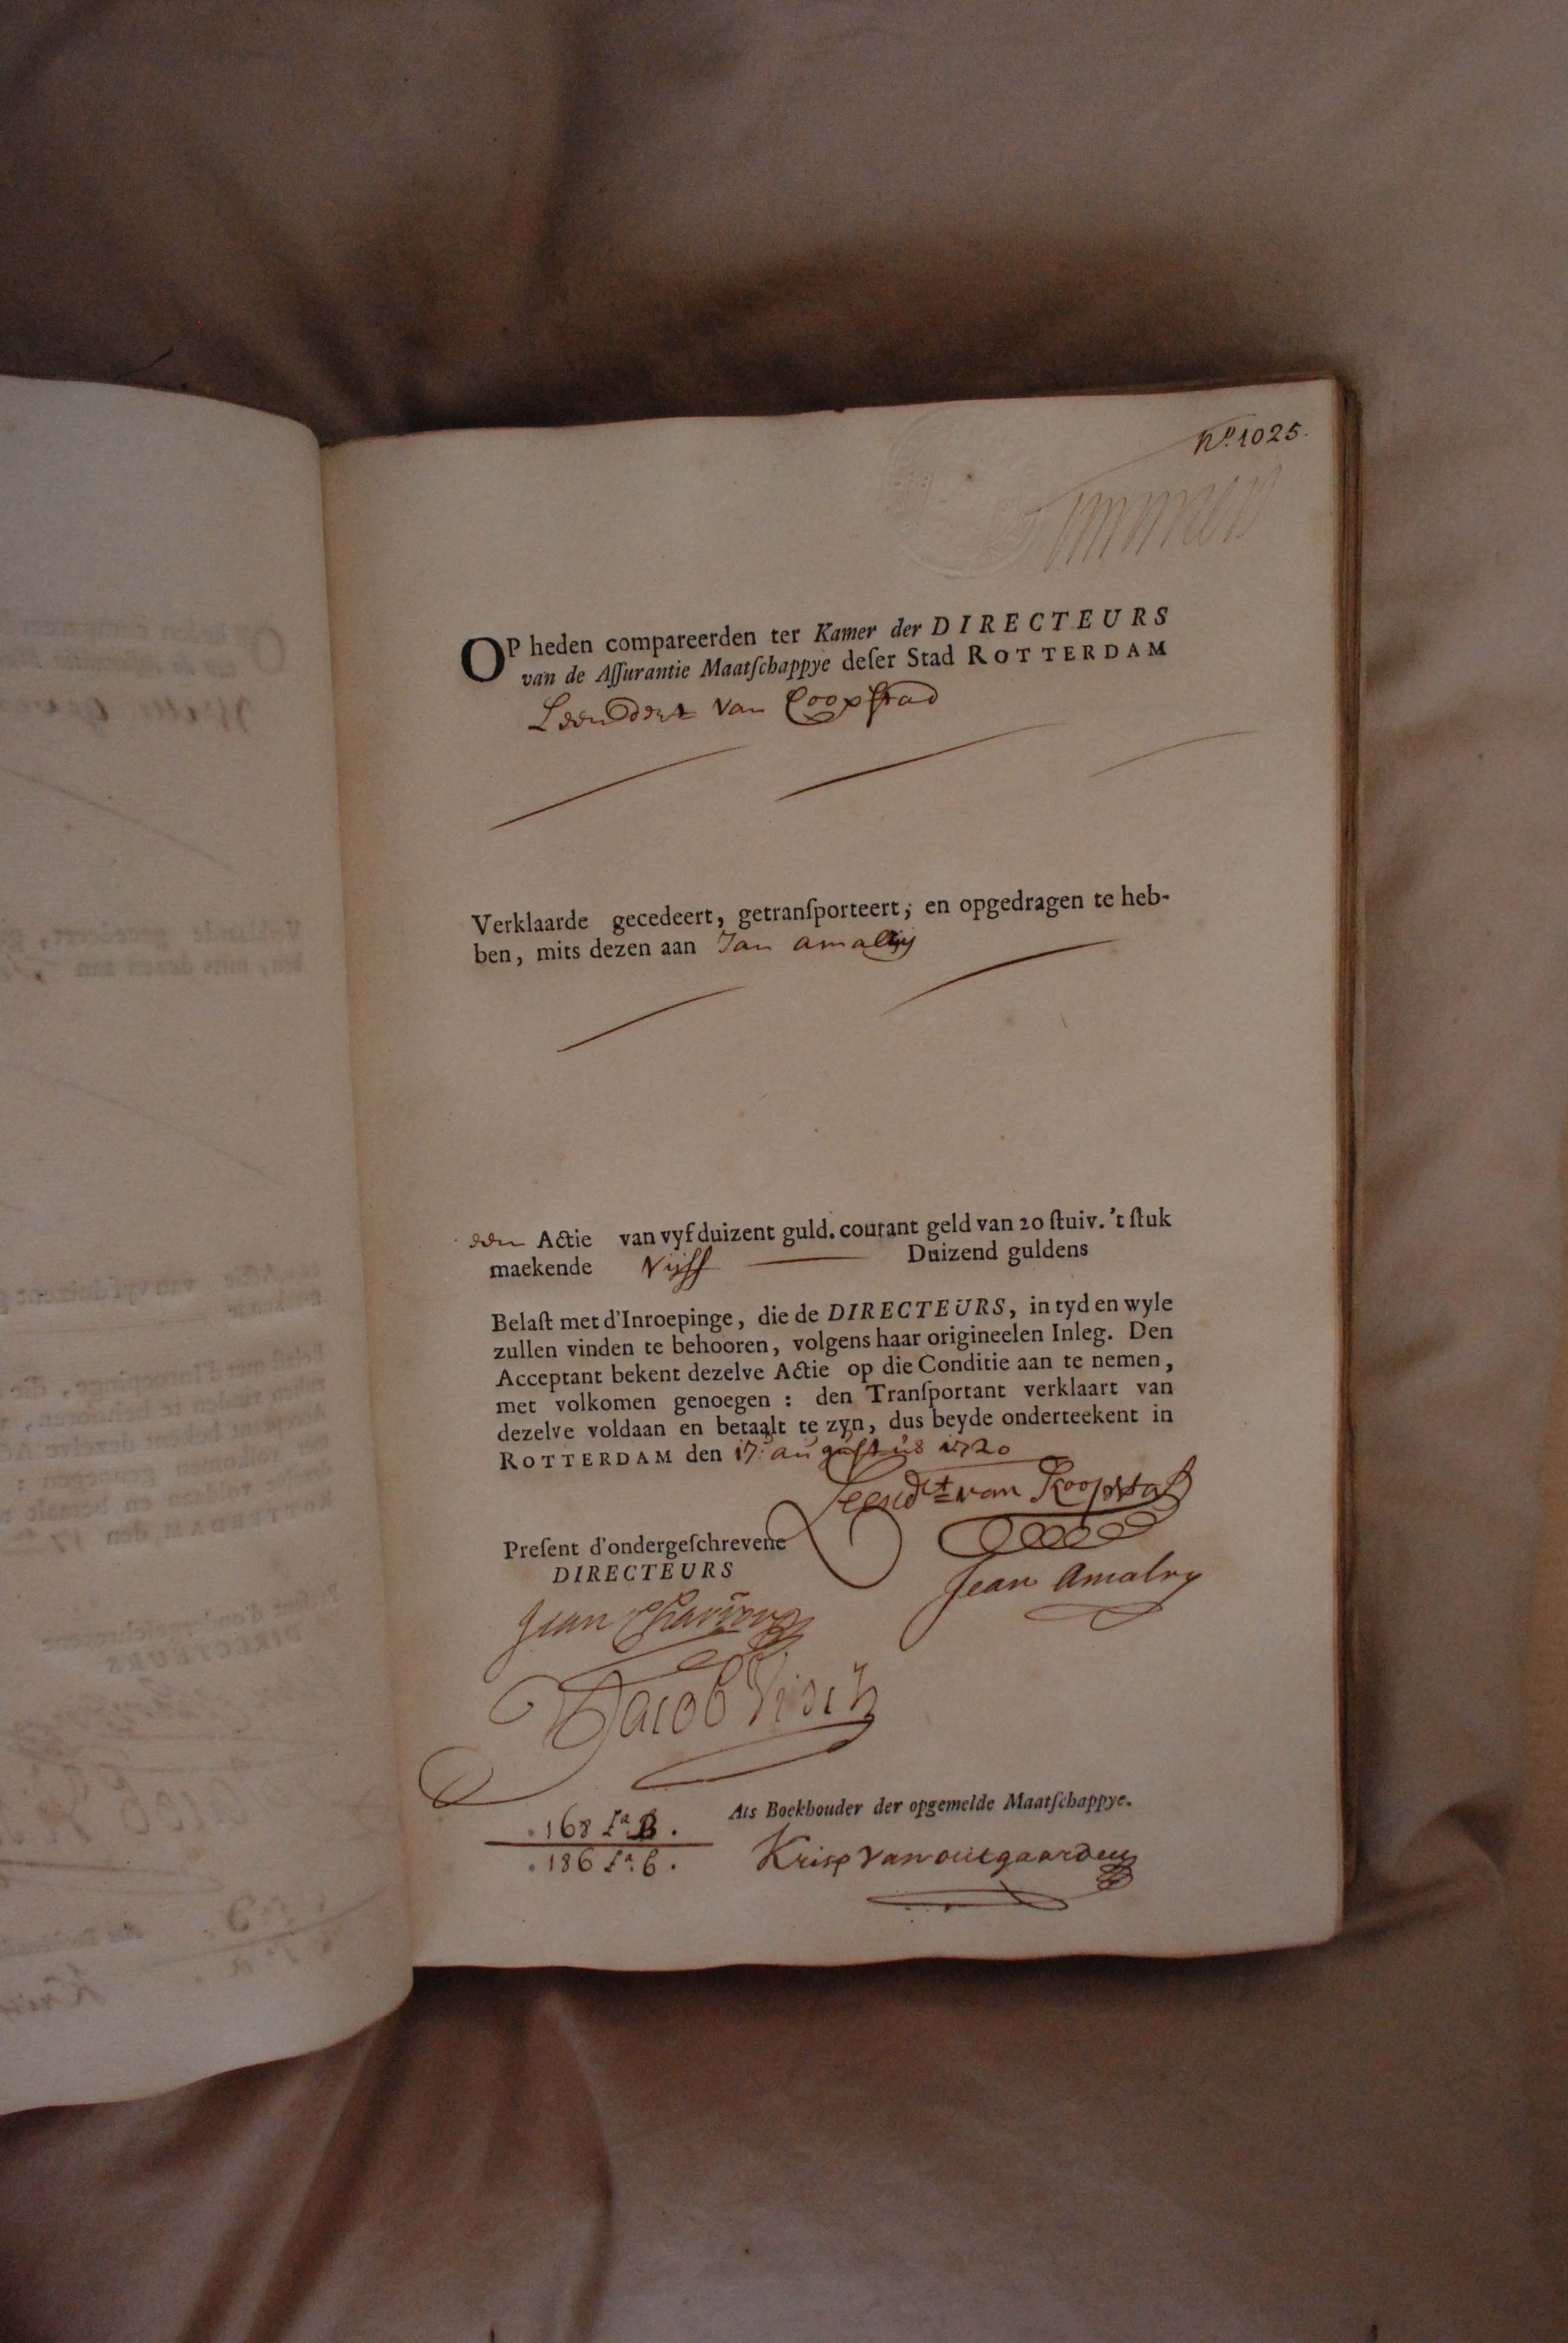 No. 1025.
OP heden compareerden ter Kamer der DIRECTEURS
van de Aſſurantie Maatſchappye deſer Stad ROTTERDAM
Leendert van Coopstad
Verklaarde gecedeert, getranſporteert, en opgedragen te heb-
ben, mits dezen aan Jan amalry
een Actie van vyf duizent guld. courant geld van 20 ſtuiv. 't ſtuk
maekende Vijff Duizend guldens
Belaſt met d'Inroepinge, die de DIRECTEURS, in tyd en wyle
zullen vinden te behooren, volgens haar origineelen Inleg. Den
Acceptant bekent dezelve Actie op die Conditie aan te nemen,
met volkomen genoegen : den Tranſportant verklaart van
dezelve voldaan en betaalt te zyn, dus beyde onderteekent in
ROTTERDAM den 17: augustus 1720
Leendt van Koopstad
Preſent d'ondergeſchrevene
DIRECTEURS
Jean Amalry
Jean
Jacob Visch
Als Boekhouder der opgemelde Maatſchappye.
168 La. B.
186 La. 6.
Krisp van outgaarden